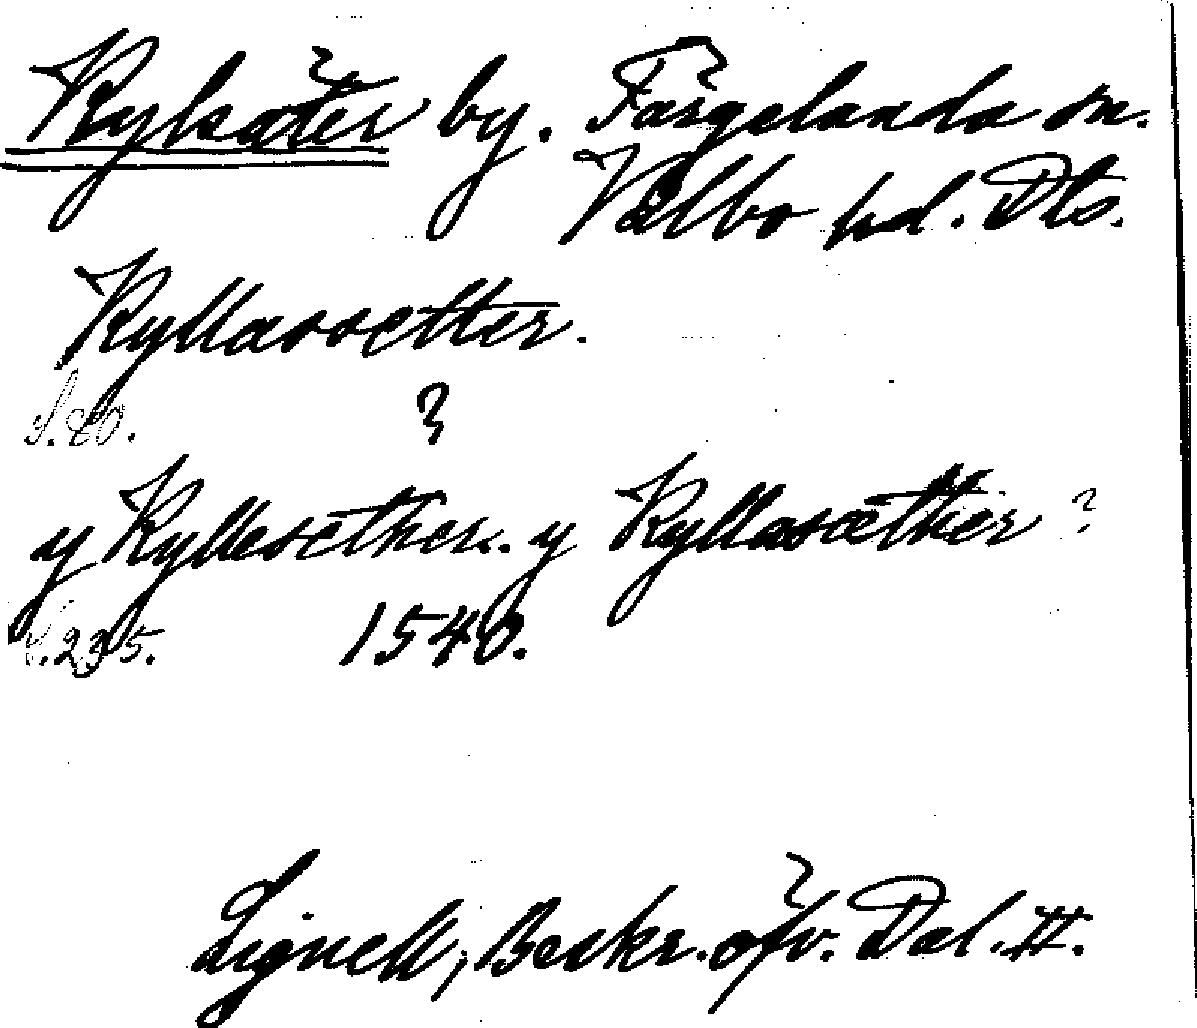 Kylsäter by. Färgelanda sn.
Valbo hd. Dls.
Kyllassetter.
S. 80. ?
y Kyllesether. y Kyllasæther ?
S. 235. 1540.
Lignell, Beskr. öfv. Dal. II.